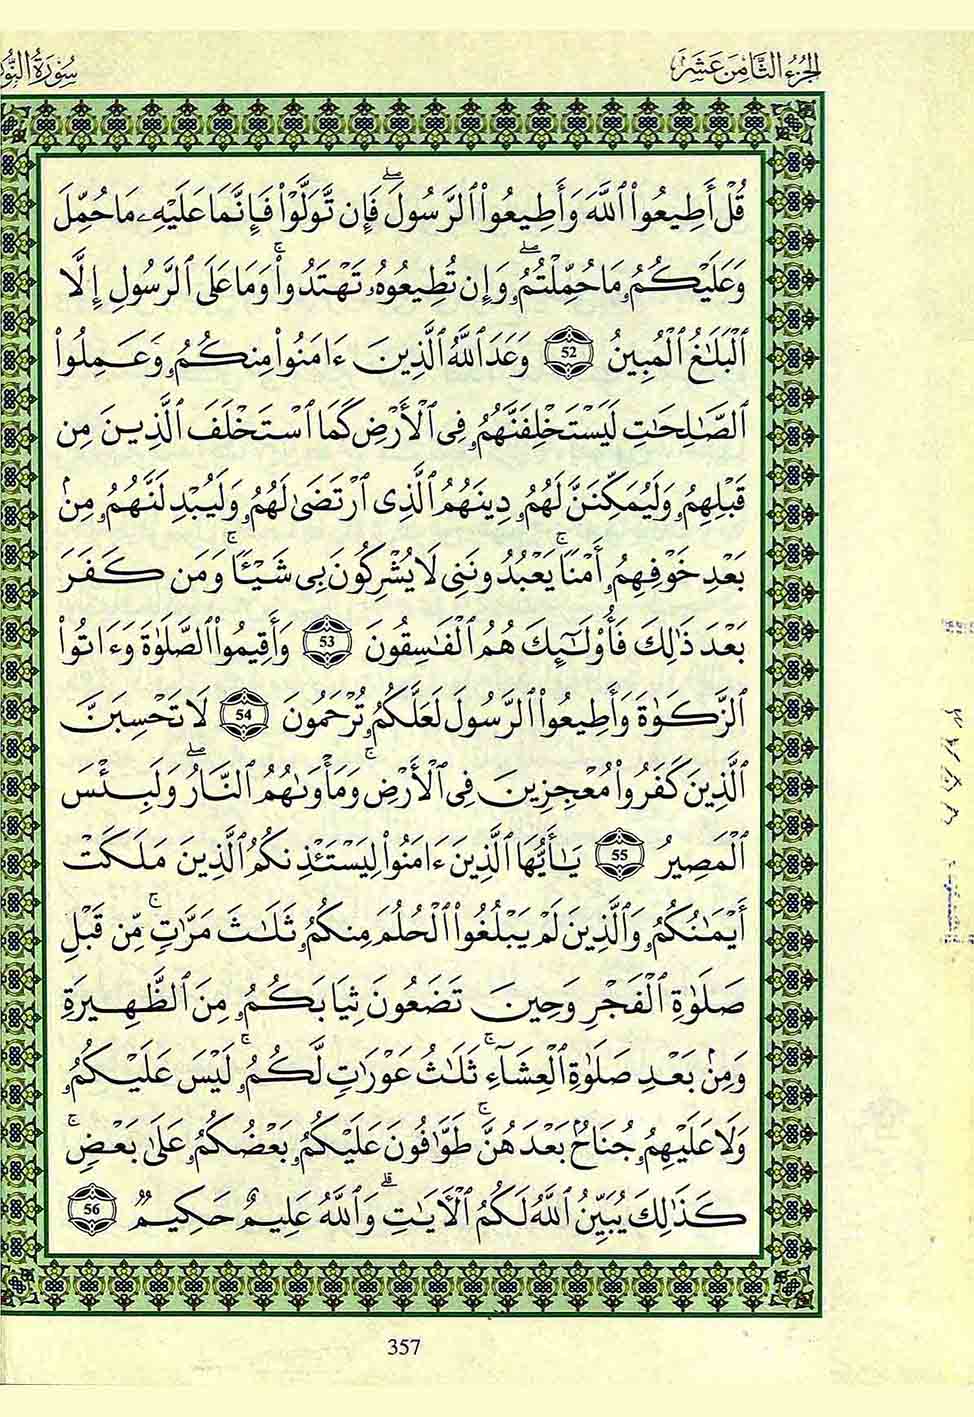 الجزء الثامن عشر
سورة النور
قُلْ أَطِيعُواْ ٱللَّهَ وَأَطِيعُواْ ٱلرَّسُولَۖ فَإِن تَّوَلَّوْاْ فَإِنَّمَا عَلَيْهِۦ مَا حُمِّلَ
وَعَلَيْكُمُۥ مَا حُمِّلْتُمُۥۖ وَإِن تُطِيعُوهُۥ تَهْتَدُواْۚ وَمَا عَلَى ٱلرَّسُولِ إِلَّا
ٱلْبَلَٰغُ ٱلْمُبِينُ 52 وَعَدَ ٱللَّهُ ٱلَّذِينَ ءَامَنُواْ مِنكُمُۥ وَعَمِلُواْ
ٱلصَّٰلِحَٰتِ لَيَسْتَخْلِفَنَّهُمُۥ فِى ٱلْأَرْضِ كَمَا ٱسْتَخْلَفَ ٱلَّذِينَ مِن
قَبْلِهِمُۥ وَلَيُمَكِّنَنَّ لَهُمُۥ دِينَهُمُ ٱلَّذِى ٱرْتَضَىٰ لَهُمُۥ وَلَيُبْدِلَنَّهُمُۥ مِنۢ
بَعْدِ خَوْفِهِمُۥ أَمْنًاۚ يَعْبُدُونَنِى لَا يُشْرِكُونَ بِى شَيْـًٔاۚ وَمَن كَفَرَ
بَعْدَ ذَٰلِكَ فَأُوْلَٰٓئِكَ هُمُ ٱلْفَٰسِقُونَ 53 وَأَقِيمُواْ ٱلصَّلَوٰةَ وَءَاتُواْ
ٱلزَّكَوٰةَ وَأَطِيعُواْ ٱلرَّسُولَ لَعَلَّكُمُۥ تُرْحَمُونَ 54 لَا تَحْسِبَنَّ
ٱلَّذِينَ كَفَرُواْ مُعْجِزِينَ فِى ٱلْأَرْضِۚ وَمَأْوَىٰهُمُ ٱلنَّارُۖ وَلَبِئْسَ
ٱلْمَصِيرُ 55 يَٰٓأَيُّهَا ٱلَّذِينَ ءَامَنُواْ لِيَسْتَـْٔذِنكُمُ ٱلَّذِينَ مَلَكَتْ
أَيْمَٰنُكُمُۥ وَٱلَّذِينَ لَمْ يَبْلُغُواْ ٱلْحُلُمَ مِنكُمُۥ ثَلَٰثَ مَرَّٰتٍۚ مِّن قَبْلِ
صَلَوٰةِ ٱلْفَجْرِ وَحِينَ تَضَعُونَ ثِيَابَكُمُۥ مِنَ ٱلظَّهِيرَةِ
وَمِنۢ بَعْدِ صَلَوٰةِ ٱلْعِشَآءِۚ ثَلَٰثُ عَوْرَٰتٍ لَّكُمُۥۚ لَيْسَ عَلَيْكُمُۥ
وَلَا عَلَيْهِمُۥ جُنَاحٌۢ بَعْدَهُنَّۚ طَوَّٰفُونَ عَلَيْكُمُۥ بَعْضُكُمُۥ عَلَىٰ بَعْضٍۚ
كَذَٰلِكَ يُبَيِّنُ ٱللَّهُ لَكُمُ ٱلْأٓيَٰتِۗ وَٱللَّهُ عَلِيمٌ حَكِيمٌ 56
357